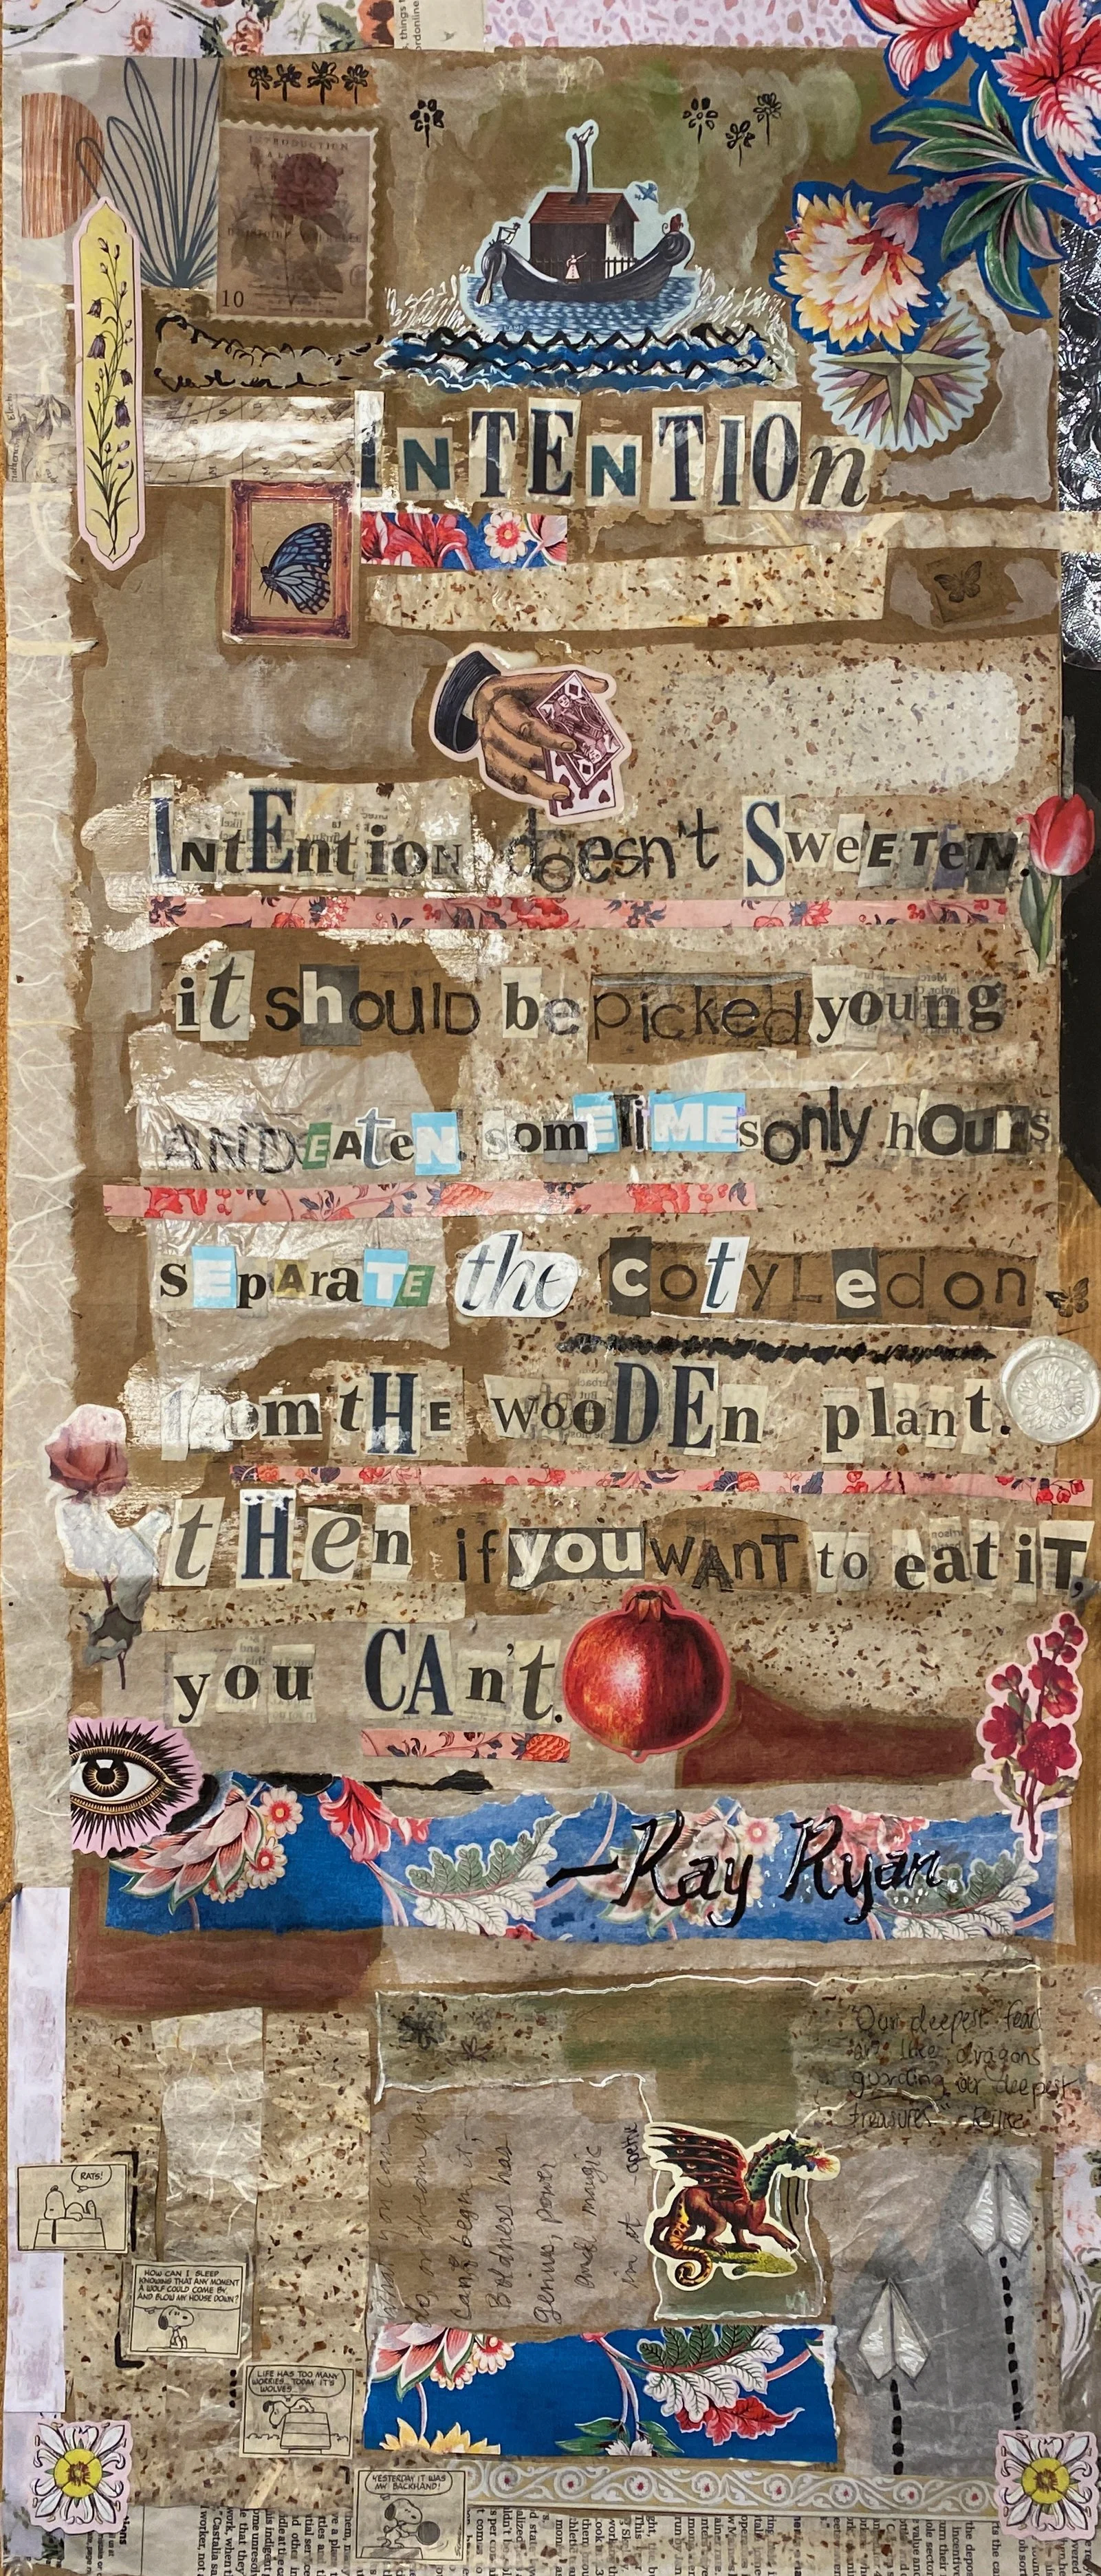 10
INTENTIOn
INtEntioN doesn't SweETeN.
it should be picked young
ANDEateN. somETiMEs only hOurs
sEpAraTE the cotyLedon
from tHE wooDEn plant.
tHen if you wAnT to eat iT,
you CAn't.
—Kay Ryan
"Our deepest fears
are like dragons
guarding our deepest
treasures" -Rilke
What you can
do, or dream you
can, begin it,
Boldness has
genius, power
and magic
in it
RATS!
HOW CAN I SLEEP
KNOWING THAT ANY MOMENT
A WOLF COULD COME BY,
AND BLOW MY HOUSE DOWN?
LIFE HAS TOO MANY
WORRIES... TODAY IT'S
WOLVES...
YESTERDAY IT WAS
MY BACKHAND!